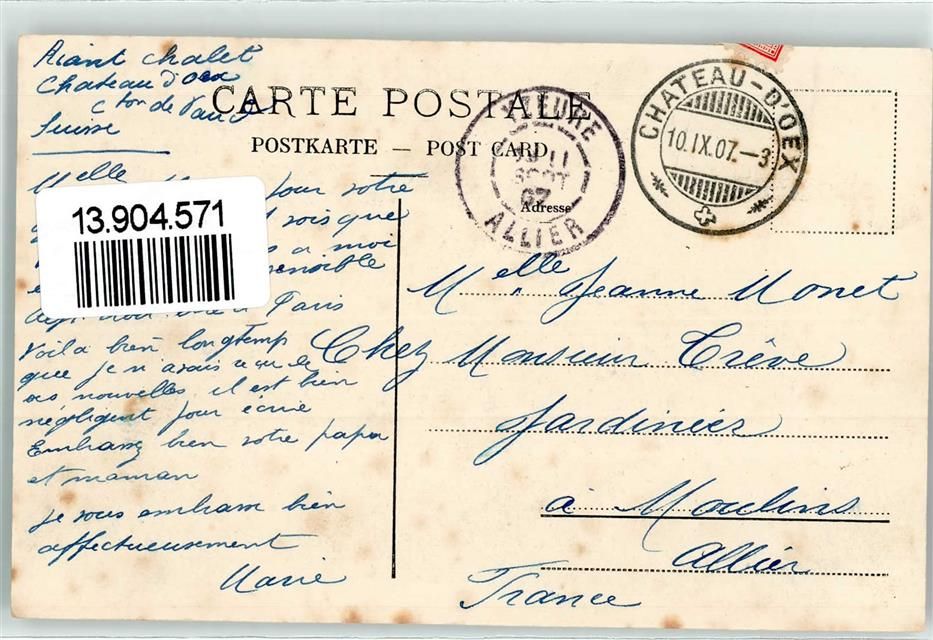 Riant chalet
Chateau d'Oex
Cton de Vaud
Suisse
CARTE POSTALE
POSTKARTE — POST CARD
Adresse
YZEURE
11
SEPT
07
ALLIER
CHATEAU-D'OEX
10.IX.07.-3
Melle
pour votre
vois que
a moi
sensible
13.904.571
Paris
Voila bien longtemp
que je n avais
ses nouvelles, il est bien
négligent pour écrire
Embrassez bien votre papa
et maman
je vous embrasse bien
affectueusement
Marie
Melle Jeanne Monet
Chez Monsieur Crève
Jardinier
à Moulins
Allier
France